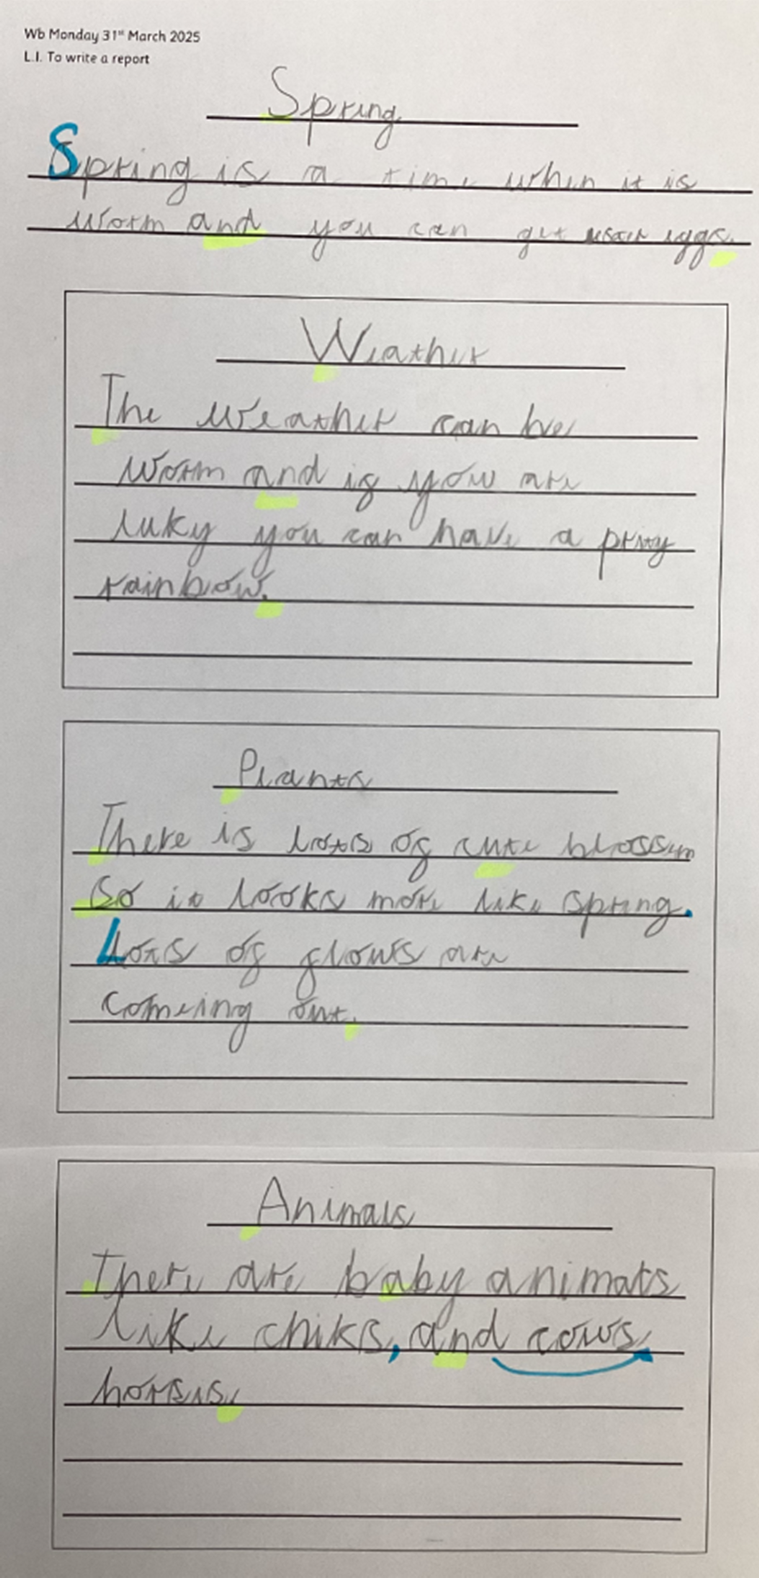 Wb Monday 31st March 2025
L.I. To write a report
Spring
Spring is a time when it is
worm and you can get eggs.
Weather
The weather can be
worm and if yow are
luky you can have a prity
rainbow.
Plants
There is lots of cute blossum
so it looks more like spring.
Lots of flows are
comeing out.
Animals
There are baby animals
like chiks, and cows
horsis.